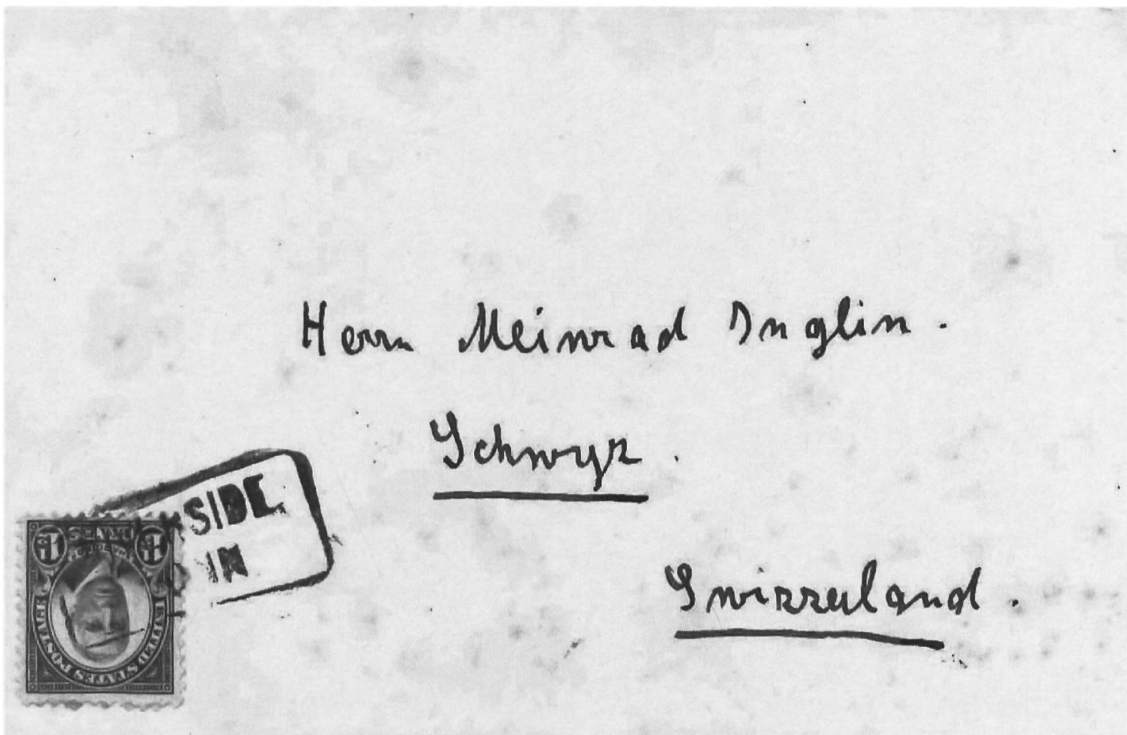 Herrn Meinrad Inglin.
Schwyz.
Swizzerland.
SIDE.
IN
UNITED STATES POSTAGE